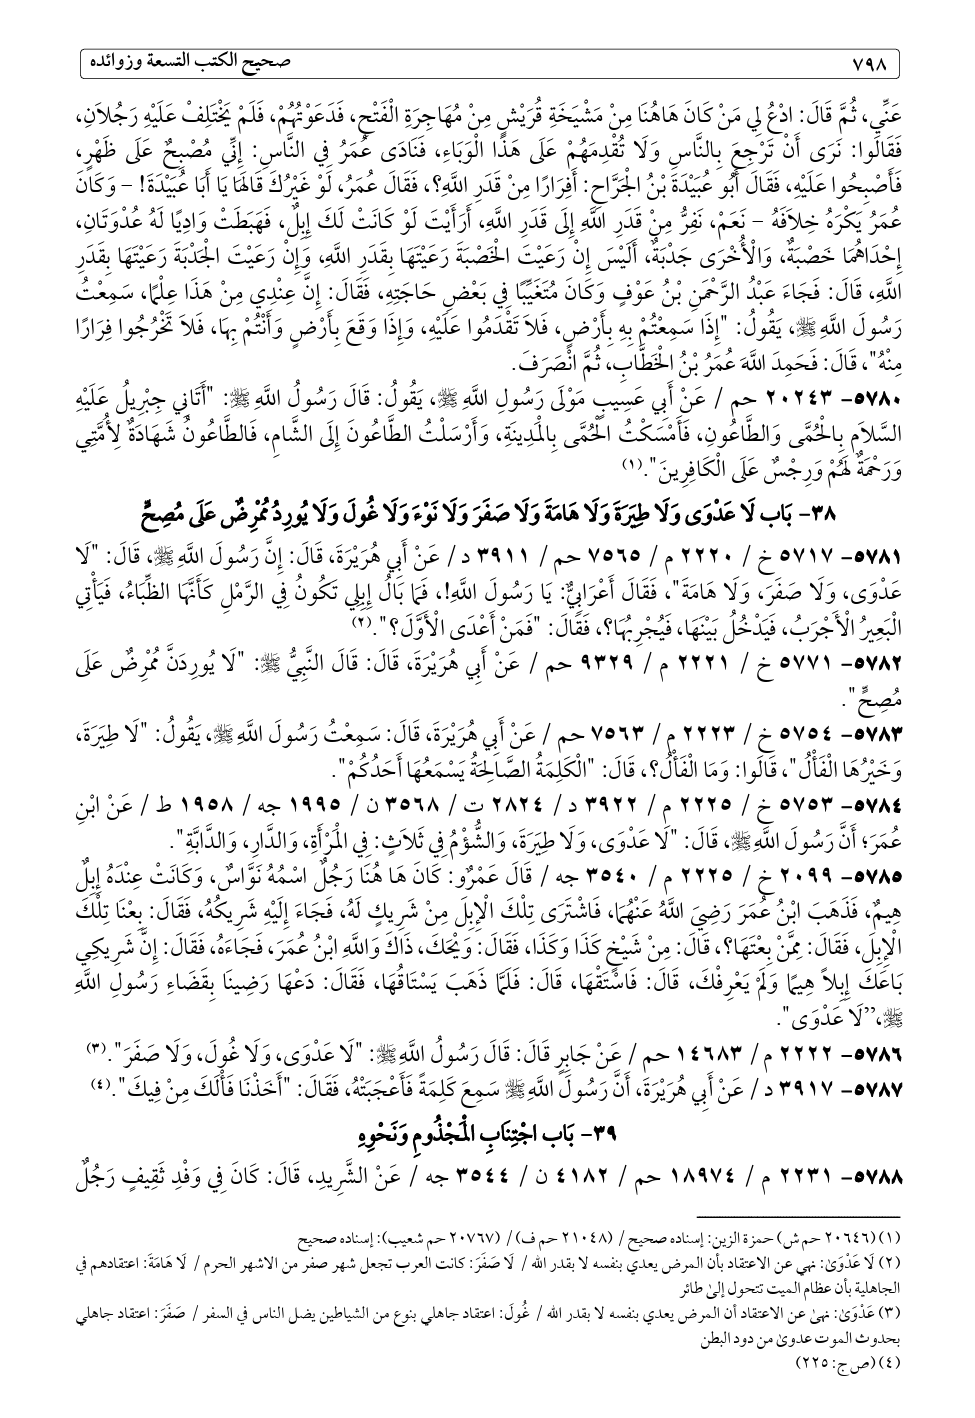 ٧٩٨ صحيح الكتب التسعة وزوائده
عَنِّي، ثُمَّ قَالَ: ادْعُ لِي مَنْ كَانَ هَاهُنَا مِنْ مَشْيَخَةِ قُرَيْشٍ مِنْ مُهَاجِرَةِ الْفَتْحِ، فَدَعَوْتُهُمْ، فَلَمْ يَخْتَلِفْ عَلَيْهِ رَجُلاَنِ،
فَقَالُوا: نَرَى أَنْ تَرْجِعَ بِالنَّاسِ وَلَا تُقْدِمَهُمْ عَلَى هَذَا الْوَبَاءِ، فَنَادَى عُمَرُ فِي النَّاسِ: إِنِّي مُصْبِحٌ عَلَى ظَهْرٍ،
فَأَصْبِحُوا عَلَيْهِ، فَقَالَ أَبُو عُبَيْدَةَ بْنُ الْجَرَّاحِ: أَفِرَارًا مِنْ قَدَرِ اللَّهِ؟، فَقَالَ عُمَرُ، لَوْ غَيْرُكَ قَالَهَا يَا أَبَا عُبَيْدَةَ! – وَكَانَ
عُمَرُ يَكْرَهُ خِلاَفَهُ – نَعَمْ، نَفِرُّ مِنْ قَدَرِ اللَّهِ إِلَى قَدَرِ اللَّهِ، أَرَأَيْتَ لَوْ كَانَتْ لَكَ إِبِلٌ، فَهَبَطَتْ وَادِيًا لَهُ عُدْوَتَانِ،
إِحْدَاهُمَا خَصْبَةٌ، وَالْأُخْرَى جَدْبَةٌ، أَلَيْسَ إِنْ رَعَيْتَ الْخَصْبَةَ رَعَيْتَهَا بِقَدَرِ اللَّهِ، وَإِنْ رَعَيْتَ الْجَدْبَةَ رَعَيْتَهَا بِقَدَرِ
اللَّهِ، قَالَ: فَجَاءَ عَبْدُ الرَّحْمَنِ بْنُ عَوْفٍ وَكَانَ مُتَغَيِّبًا فِي بَعْضِ حَاجَتِهِ، فَقَالَ: إِنَّ عِنْدِي مِنْ هَذَا عِلْمًا، سَمِعْتُ
رَسُولَ اللَّهِ ﷺ، يَقُولُ: "إِذَا سَمِعْتُمْ بِهِ بِأَرْضٍ، فَلاَ تَقْدَمُوا عَلَيْهِ، وَإِذَا وَقَعَ بِأَرْضٍ وَأَنْتُمْ بِهَا، فَلاَ تَخْرُجُوا فِرَارًا
مِنْهُ"، قَالَ: فَحَمِدَ اللَّهَ عُمَرُ بْنُ الْخَطَّابِ، ثُمَّ انْصَرَفَ.
٥٧٨٠- ٢٠٢٤٣ حم / عَنْ أَبِي عَسِيبٍ مَوْلَى رَسُولِ اللَّهِ ﷺ، يَقُولُ: قَالَ رَسُولُ اللَّهِ ﷺ: "أَتَانِي جِبْرِيلُ عَلَيْهِ
السَّلاَمِ بِالْحُمَّى وَالطَّاعُونِ، فَأَمْسَكْتُ الْحُمَّى بِالْمَدِينَةِ، وَأَرْسَلْتُ الطَّاعُونَ إِلَى الشَّامِ، فَالطَّاعُونُ شَهَادَةٌ لِأُمَّتِي
وَرَحْمَةٌ لَهُمْ وَرِجْسٌ عَلَى الْكَافِرِينَ".(١)
٣٨- بَاب لَا عَدْوَى وَلَا طِيَرَةَ وَلَا هَامَةَ وَلَا صَفَرَ وَلَا نَوْءَ وَلَا غُولَ وَلَا يُورِدُ مُمْرِضٌ عَلَى مُصِحٍّ
٥٧٨١- ٥٧١٧ خ / ٢٢٢٠ م / ٧٥٦٥ حم / ٣٩١١ د / عَنْ أَبِي هُرَيْرَةَ، قَالَ: إِنَّ رَسُولَ اللَّهِ ﷺ، قَالَ: "لَا
عَدْوَى، وَلَا صَفَرَ، وَلَا هَامَةَ"، فَقَالَ أَعْرَابِيٌّ: يَا رَسُولَ اللَّهِ!، فَمَا بَالُ إِبِلِي تَكُونُ فِي الرَّمْلِ كَأَنَّهَا الظِّبَاءُ، فَيَأْتِي
الْبَعِيرُ الْأَجْرَبُ، فَيَدْخُلُ بَيْنَهَا، فَيُجْرِبُهَا؟، فَقَالَ: "فَمَنْ أَعْدَى الْأَوَّلَ؟".(٢)
٥٧٨٢- ٥٧٧١ خ / ٢٢٢١ م / ٩٣٢٩ حم / عَنْ أَبِي هُرَيْرَةَ، قَالَ: قَالَ النَّبِيُّ ﷺ: "لَا يُورِدَنَّ مُمْرِضٌ عَلَى
مُصِحٍّ".
٥٧٨٣- ٥٧٥٤ خ / ٢٢٢٣ م / ٧٥٦٣ حم / عَنْ أَبِي هُرَيْرَةَ، قَالَ: سَمِعْتُ رَسُولَ اللَّهِ ﷺ، يَقُولُ: "لَا طِيَرَةَ،
وَخَيْرُهَا الْفَأْلُ"، قَالُوا: وَمَا الْفَأْلُ؟، قَالَ: "الْكَلِمَةُ الصَّالِحَةُ يَسْمَعُهَا أَحَدُكُمْ".
٥٧٨٤- ٥٧٥٣ خ / ٢٢٢٥ م / ٣٩٢٢ د / ٢٨٢٤ ت / ٣٥٦٨ ن / ١٩٩٥ جه / ١٩٥٨ ط / عَنْ ابْنِ
عُمَرَ؛ أَنَّ رَسُولَ اللَّهِ ﷺ، قَالَ: "لَا عَدْوَى، وَلَا طِيَرَةَ، وَالشُّؤْمُ فِي ثَلاَثٍ: فِي الْمَرْأَةِ، وَالدَّارِ، وَالدَّابَّةِ".
٥٧٨٥- ٢٠٩٩ خ / ٢٢٢٥ م / ٣٥٤٠ جه / قَالَ عَمْرٌو: كَانَ هَا هُنَا رَجُلٌ اسْمُهُ نَوَّاسٌ، وَكَانَتْ عِنْدَهُ إِبِلٌ
هِيمٌ، فَذَهَبَ ابْنُ عُمَرَ رَضِيَ اللَّهُ عَنْهُمَا، فَاشْتَرَى تِلْكَ الْإِبِلَ مِنْ شَرِيكٍ لَهُ، فَجَاءَ إِلَيْهِ شَرِيكُهُ، فَقَالَ: بِعْنَا تِلْكَ
الْإِبِلَ، فَقَالَ: مِمَّنْ بِعْتَهَا؟، قَالَ: مِنْ شَيْخٍ كَذَا وَكَذَا، فَقَالَ: وَيْحَكَ، ذَاكَ وَاللَّهِ ابْنُ عُمَرَ، فَجَاءَهُ، فَقَالَ: إِنَّ شَرِيكِي
بَاعَكَ إِبِلاً هِيمًا وَلَمْ يَعْرِفْكَ، قَالَ: فَاسْتَقْهَا، قَالَ: فَلَمَّا ذَهَبَ يَسْتَاقُهَا، فَقَالَ: دَعْهَا رَضِينَا بِقَضَاءِ رَسُولِ اللَّهِ
ﷺ،”لَا عَدْوَى".
٥٧٨٦- ٢٢٢٢ م / ١٤٦٨٣ حم / عَنْ جَابِرٍ قَالَ: قَالَ رَسُولُ اللَّهِ ﷺ: "لَا عَدْوَى، وَلَا غُولَ، وَلَا صَفَرَ".(٣)
٥٧٨٧- ٣٩١٧ د / عَنْ أَبِي هُرَيْرَةَ، أَنَّ رَسُولَ اللَّهِ ﷺ سَمِعَ كَلِمَةً فَأَعْجَبَتْهُ، فَقَالَ: "أَخَذْنَا فَأْلَكَ مِنْ فِيكَ".(٤)
٣٩- بَاب اجْتِنَابِ الْمَجْذُومِ وَنَحْوِهِ
٥٧٨٨- ٢٢٣١ م / ١٨٩٧٤ حم / ٤١٨٢ ن / ٣٥٤٤ جه / عَنْ الشَّرِيدِ، قَالَ: كَانَ فِي وَفْدِ ثَقِيفٍ رَجُلٌ
(١) (٢٠٦٤٦ حم ش) حمزة الزين: إسناده صحيح / (٢١٠٤٨ حم ف) / (٢٠٧٦٧ حم شعيب): إسناده صحيح
(٢) لَا عَدْوَىٰ: نهي عن الاعتقاد بأن المرض يعدي بنفسه لا بقدر الله / لَا صَفَرَ: كانت العرب تجعل شهر صفر من الاشهر الحرم / لَا هَامَةَ: اعتقادهم في
الجاهلية بأن عظام الميت تتحول إلىٰ طائر
(٣) عَدْوَىٰ: نهىٰ عن الاعتقاد أن المرض يعدي بنفسه لا بقدر الله / غُولَ: اعتقاد جاهلي بنوع من الشياطين يضل الناس في السفر / صَفَرَ: اعتقاد جاهلي
بحدوث الموت عدوىٰ من دود البطن
(٤) (ص ج: ٢٢٥)